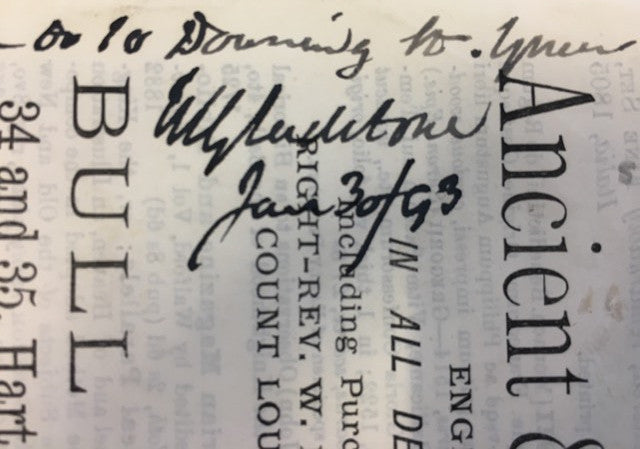 — or 10 Downing St. Yours
WEGladstone
Jan 30/93
Ancient &
ENG
IN ALL DE
Including Purc
RIGHT-REV. W.
COUNT LOU
BULL
34 and 35, Hart